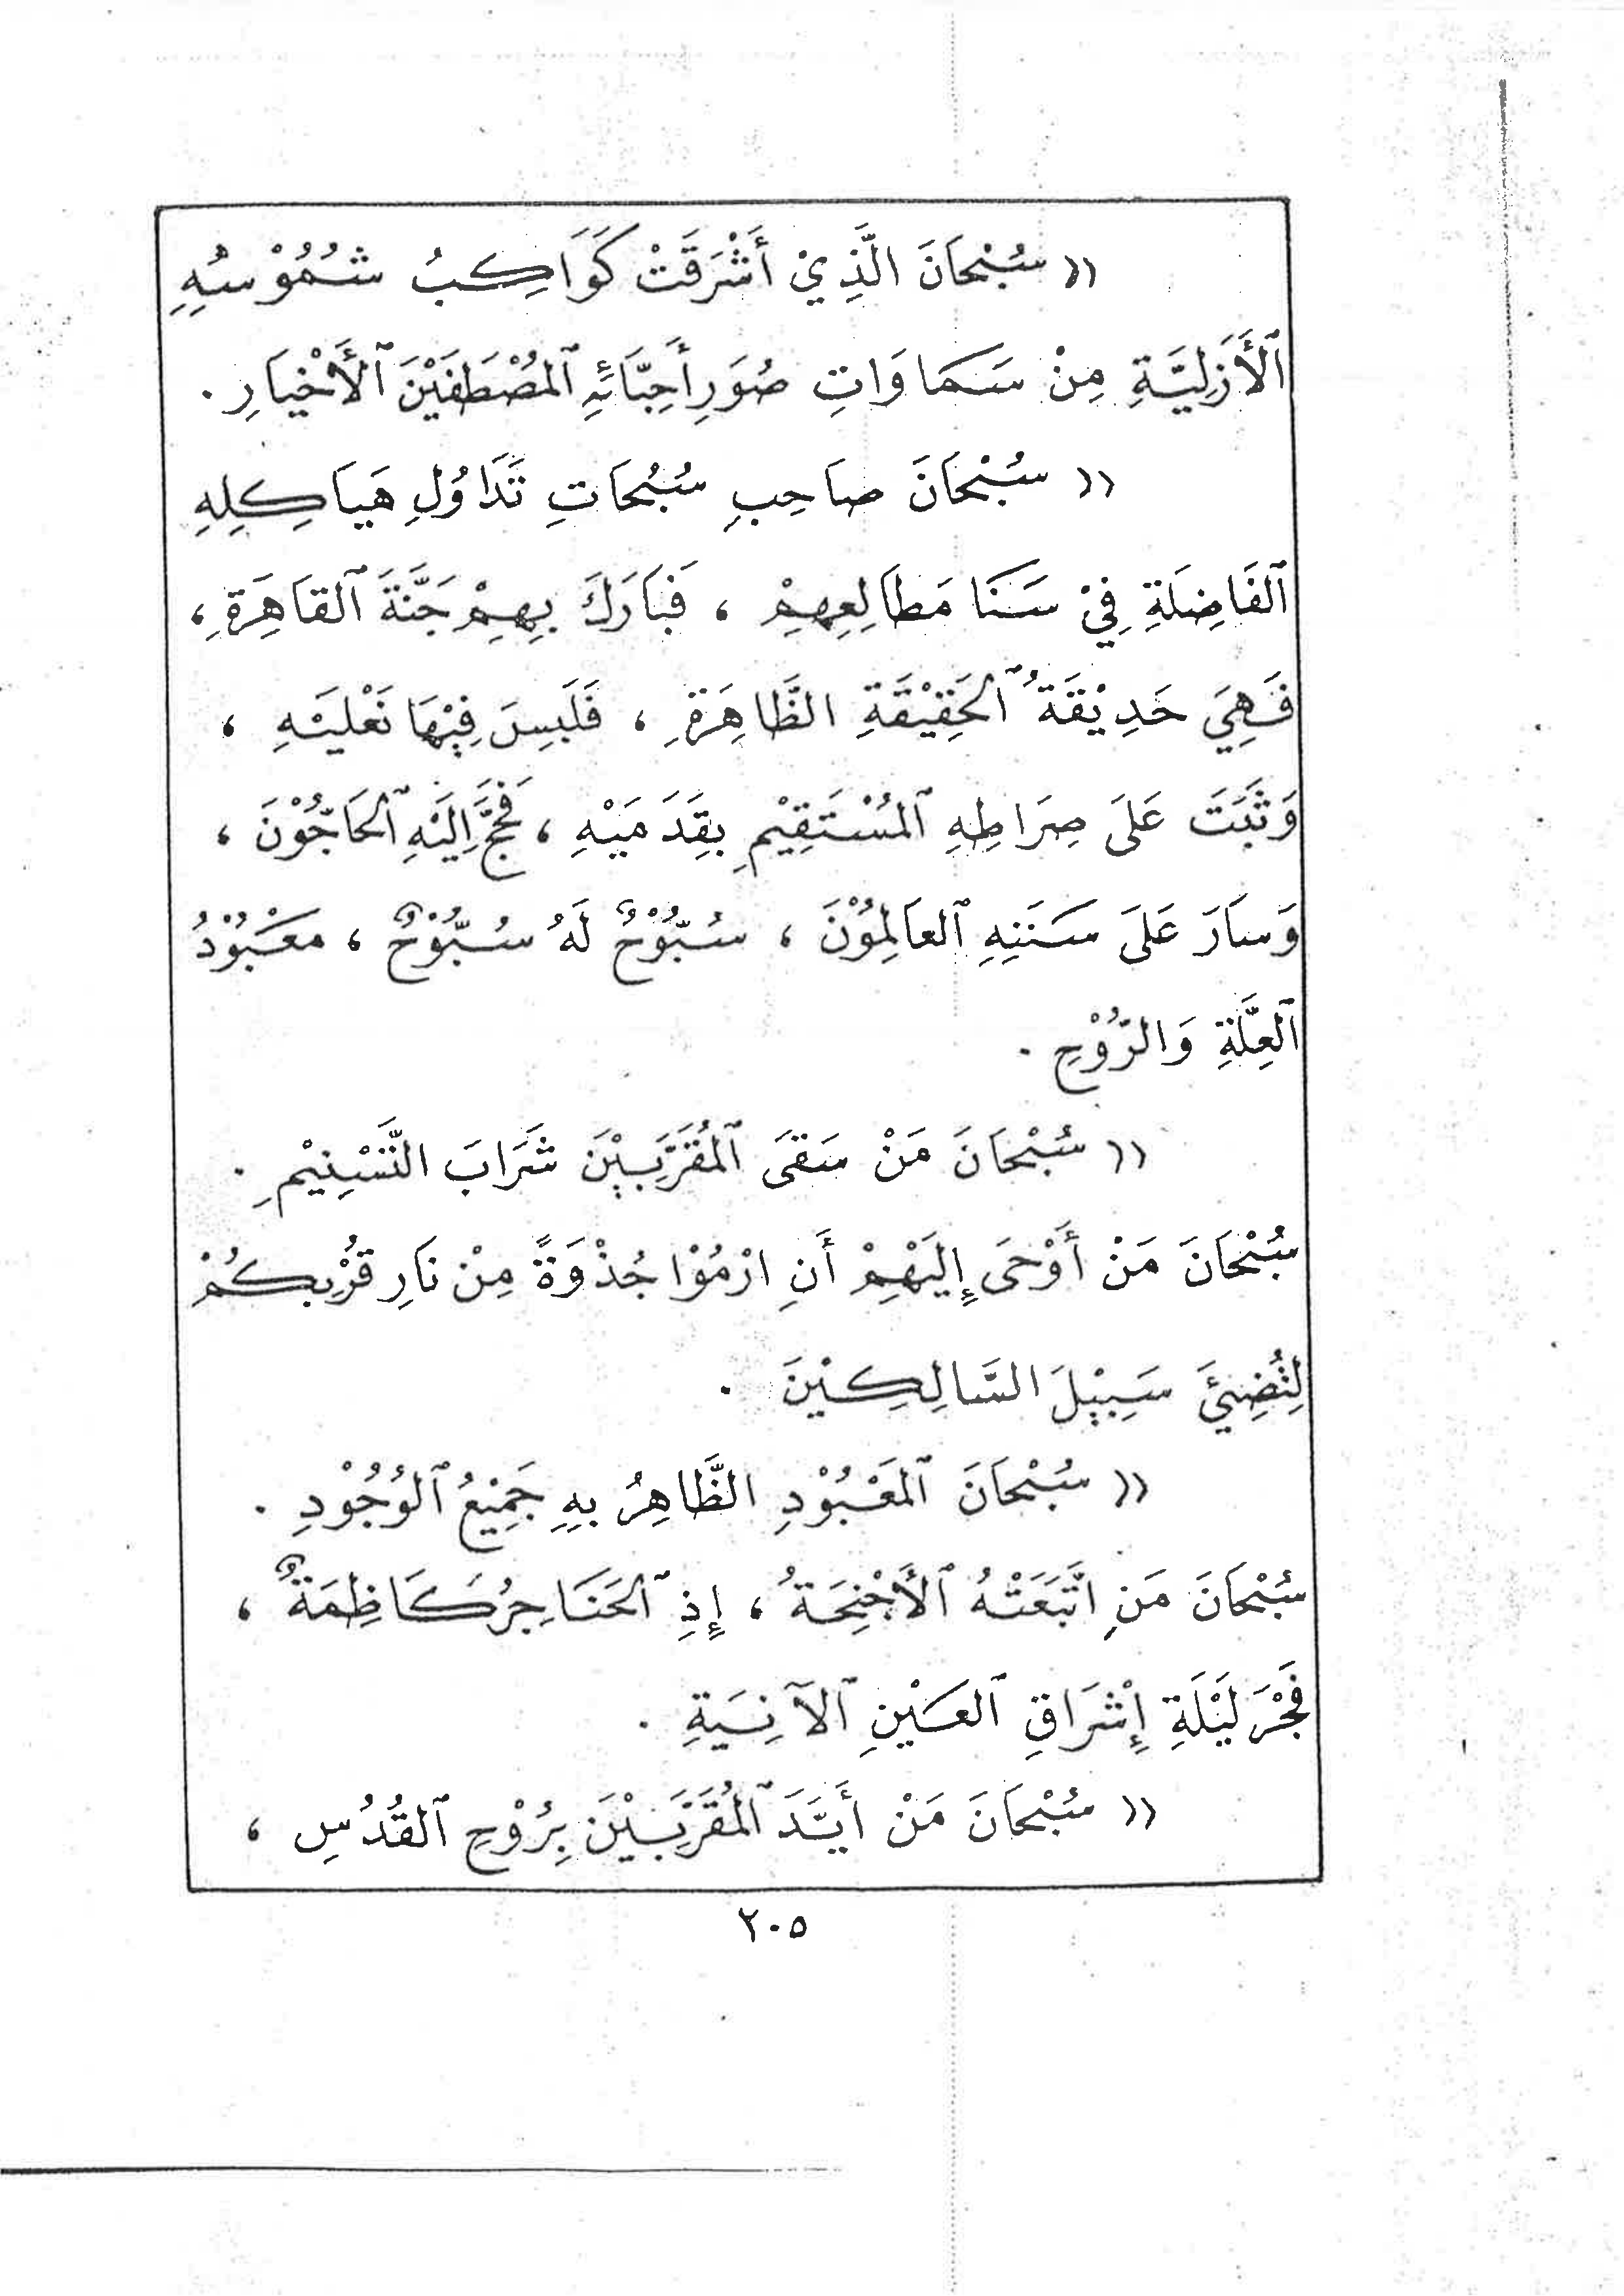 (( سُبْحَانَ الَّذِيْ أَشْرَقَتْ كَوَاكِبُ شُمُوْسِهِ
ٱلْأَزَلِيَّةِ مِنْ سَمَاوَاتِ صُوَرِ أَحِبَّائِهِ ٱلمُصْطَفَيْنَ ٱلأَخْيَارِ .
(( سُبْحَانَ صَاحِبِ سُبُحَاتِ تَدَاوُلِ هَيَاكِلِهِ
ٱلفَاضِلَةِ فِيْ سَنَا مَطَالِعِهِمْ ، فَبَارَكَ بِهِمْ جَنَّةَ ٱلقَاهِرَةِ ،
فَهِيَ حَدِيْقَةُ ٱلحَقِيْقَةِ الظَّاهِرَةِ ، فَلَبِسَ فِيْهَا نَعْلَيْهِ ،
وَثَبَتَ عَلَى صِرَاطِهِ ٱلمُسْتَقِيْمِ بِقَدَمَيْهِ ، فَحَجَّ إِلَيْهِ ٱلحَاجُّوْنَ ،
وَسَارَ عَلَى سَنَنِهِ ٱلعَالِمُوْنَ ، سُبُّوْحٌ لَهُ سُبُّوْحٌ ، مَعْبُوْدُ
ٱلعِلَّةِ وَالرُّوْحِ .
(( سُبْحَانَ مَنْ سَقَى ٱلمُقَرَّبِيْنَ شَرَابَ التَّسْنِيْمِ .
سُبْحَانَ مَنْ أَوْحَى إِلَيْهِمْ أَنِ ارْمُوْا جُذْوَةً مِنْ نَارِ قُرْبِكُمْ
لِتُضِيْئَ سَبِيْلَ السَّالِكِيْنَ .
(( سُبْحَانَ ٱلمَعْبُوْدِ الظَّاهِرُ بِهِ جَمِيْعُ ٱلوُجُوْدِ .
سُبْحَانَ مَنِ اتَّبَعَتْهُ ٱلأَجْنِحَةُ ، إِذِ ٱلحَنَاجِرُ كَاظِمَةٌ ،
فَجْرَ لَيْلَةِ إِشْرَاقِ ٱلعَيْنِ ٱلآنِيَةِ .
(( سُبْحَانَ مَنْ أَيَّدَ ٱلمُقَرَّبِيْنَ بِرُوْحِ ٱلقُدُسِ ،
٢٠٥